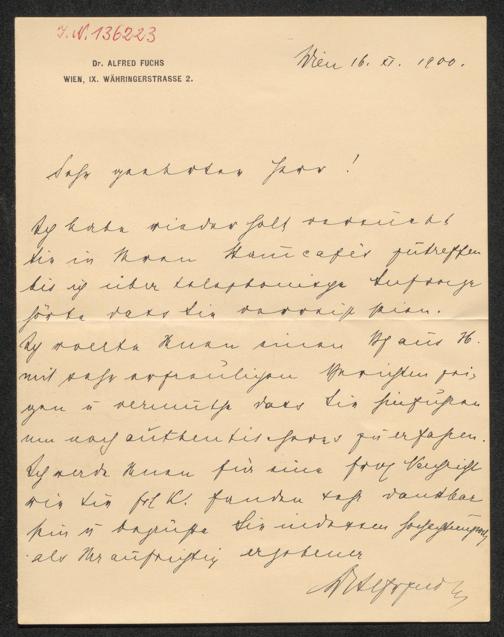 I.N. 136223
Dr. ALFRED FUCHS
WIEN, IX. WÄHRINGERSTRASSE 2.
Wien 16. XI. 1900.
Sehr geehrter Herr!
Ich habe wiederholt versucht
Sie in Ihren Stammcafés zu treffen
bis ich über telephonische Anfrage
hörte dass Sie verreist seien.
Ich wollte Ihnen einen aus H.
mit sehr erfreulichen Berichten zei-
gen u vermuthe dass Sie hinfuhren
um noch authentischeres zu erfahren.
Ich werde Ihnen für eine Nachricht
wie Sie Frl K. fanden sehr dankbar
sein u begrüße Sie indessen hochachtungsvoll
als Ihr aufrichtig ergebener
Dr Alf Fuchs